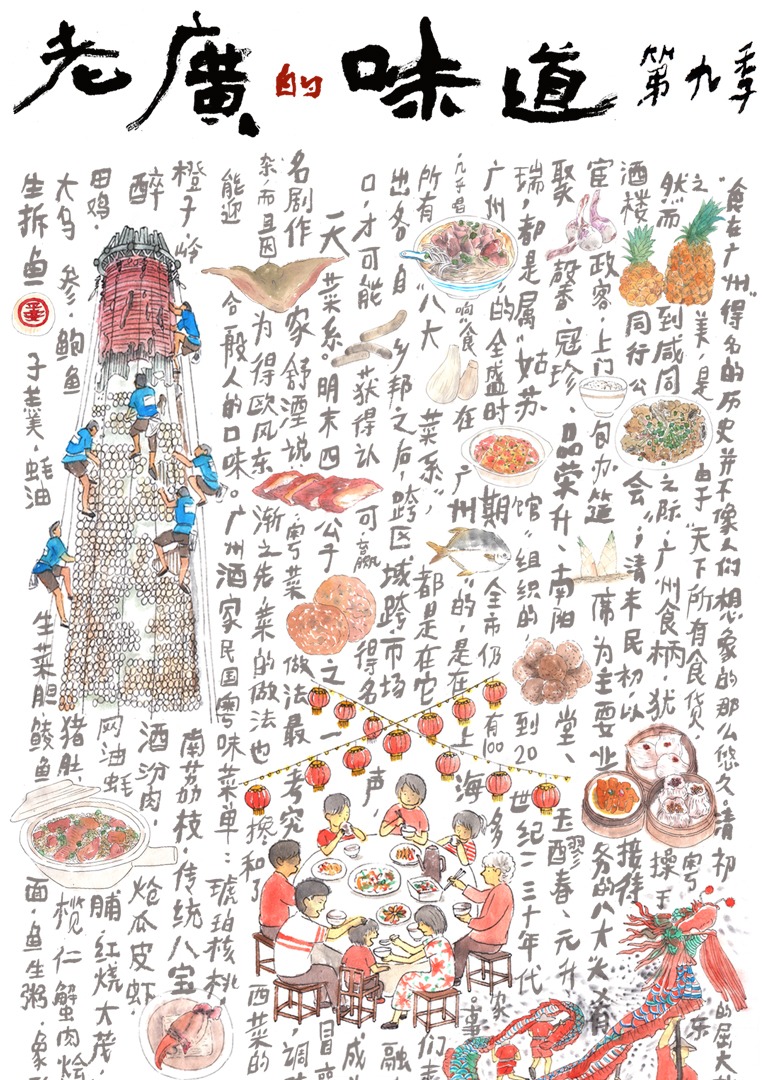 老廣的味道 第九季
"食在广州"得名的历史并不像人们想象的那么悠久,清初的屈大
之美,是由于"天下所有食货粤东
然而到咸同之际,广州食柄,犹操于
酒楼同行公会",清末民初,以接待
宦政客,上门包办筵席为主要业务的八大"大肴
聚馨、冠珍、品荣升、南阳堂、玉醪春、元升
瑞,都是属"姑苏馆"组织的,到20世纪二三十年代
广州"的全盛时期,全市仍有100多家
几乎唱响"食在广州"的,是在上海事
所有"八大菜系",都是在它们走
出各自乡邦之后,跨区域跨市场融
口,才可能获得认可,赢得名声,成为
一天菜系。明末四公子之一冒
名剧作家舒湮说:粤菜做法最考究调
杂,而且因为得欧风东渐之先,菜的做法也搀和了西菜的
能迎合一般人的口味。广州酒家民国粤味菜单:琥珀核桃,
橙子,岭南荔枝,传统八宝
醉酒汾肉,炝瓜皮虾
田鸡,网油蚝脯,红烧大茂,
大乌参,鲍鱼猪肚,榄仁蟹肉烩
生拆鱼子羹,蚝油生菜胆鲮鱼面,鱼生粥,象形